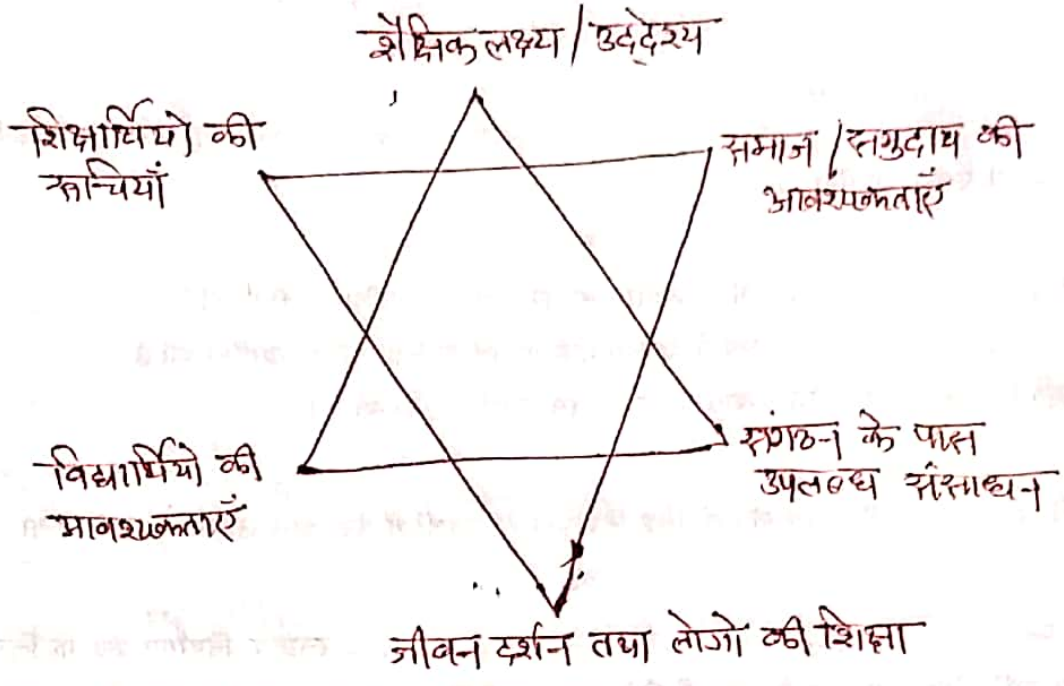 शैक्षिक लक्ष्य / उद्देश्य
शिक्षार्थियो की
रूचियाँ
समाज / समुदाय की
आवश्यकताएँ
विद्यार्थियो की
आवश्यकताएँ
संगठन के पास
उपलब्ध संसाधन
जीवन दर्शन तथा लोगो की शिक्षा